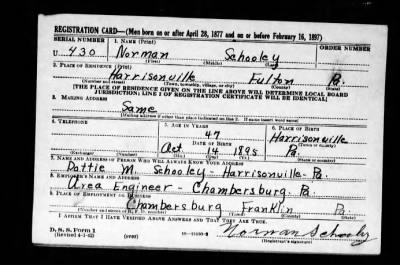 REGISTRATION CARD—(Men born on or after April 28, 1877 and on or before February 16, 1897)
SERIAL NUMBER 1. NAME (Print) ORDER NUMBER
U 430 Norman Schooley
(First) (Middle) (Last)
2. PLACE OF RESIDENCE (Print)
Harrisonville Fulton Pa.
(Number and street) (Town, township, village, or city) (County) (State)
[THE PLACE OF RESIDENCE GIVEN ON THE LINE ABOVE WILL DETERMINE LOCAL BOARD
JURISDICTION; LINE 2 OF REGISTRATION CERTIFICATE WILL BE IDENTICAL]
3. MAILING ADDRESS
Same
[Mailing address if other than place indicated on line 2. If same insert word same]
4. TELEPHONE 5. AGE IN YEARS 6. PLACE OF BIRTH
47 Harrisonville
DATE OF BIRTH (Town or county)
Oct 14 1895 Pa.
(Exchange) (Number) (Mo.) (Day) (Yr.) (State or country)
7. NAME AND ADDRESS OF PERSON WHO WILL ALWAYS KNOW YOUR ADDRESS
Dottie M. Schooley - Harrisonville - Pa.
8. EMPLOYER'S NAME AND ADDRESS
Area Engineer - Chambersburg, Pa.
9. PLACE OF EMPLOYMENT OR BUSINESS
Chambersburg Franklin Pa
(Number and street or R. F. D. number) (Town) (County) (State)
I AFFIRM THAT I HAVE VERIFIED ABOVE ANSWERS AND THAT THEY ARE TRUE.
D. S. S. Form 1 Norman Schooley
(Revised 4-1-42) (over) (Registrant's signature)